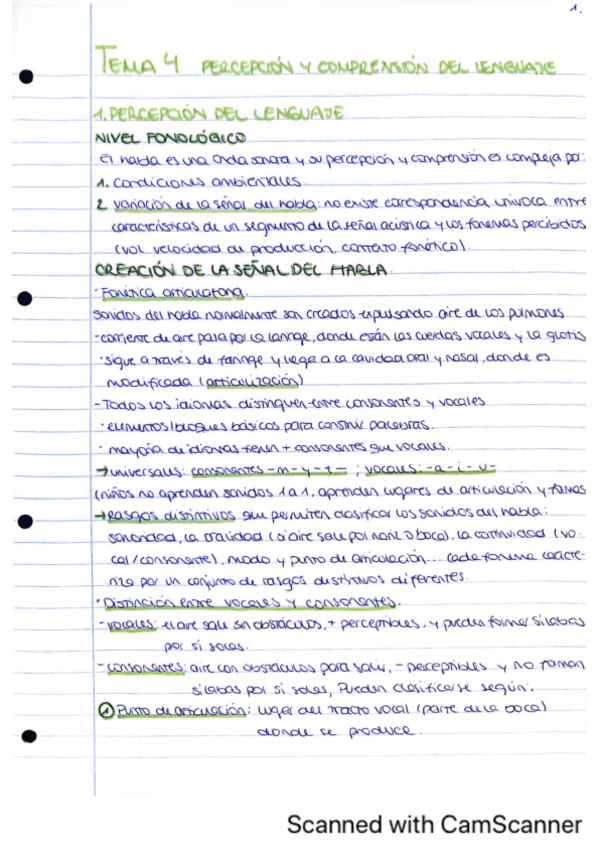 1.
TEMA 4 PERCEPCIÓN Y COMPRENSIÓN DEL LENGUAJE
1. PERCEPCIÓN DEL LENGUAJE
NIVEL FONOLÓGICO
El habla es una onda sonora y su percepción y comprensión es compleja por:
1. Condiciones ambientales
2 variación de la señal del habla: no existe correspondencia unívoca entre
características de un segmento de la señal acústica y los fonemas percibidos
(vol, velocidad de producción, contexto fonético).
CREACIÓN DE LA SEÑAL DEL HABLA.
· Fonética articulatoria.
sonidos del habla normalmente son creados expulsando aire de los pulmones
- corriente de aire pasa por la laringe, donde están las cuerdas vocales y la glotis
· sigue a través de faringe y llega a la cavidad oral y nasal, donde es
modificada (articulización)
- Todos los idiomas distinguen entre consonantes y vocales
· elementos/bloques básicos para construir palabras.
· mayoría de idiomas tienen + consonantes que vocales.
→ universales: consonantes -m-y-t- ; vocales: -a-i-u-
(niños no aprenden sonidos 1 a 1, aprenden lugares de articulación y formas
→ Rasgos distintivos que permiten clasificar los sonidos del habla:
sonoridad, la oralidad (si aire sale por nariz o boca), la continuidad (vo-
cal/consonante), modo y punto de articulación... Cada fonema caracte-
riza por un conjunto de rasgos distintivos diferentes.
· Distinción entre vocales y consonantes.
- vocales: el aire sale sin obstáculos, + perceptibles, y pueden formar sílabas
por sí solas.
- consonantes: aire con obstáculos para salir, - perceptibles y no forman
sílabas por sí solas, Pueden clasificarse según:
① Punto de articulación: lugar del tracto vocal (parte de la boca)
donde se produce.
Scanned with CamScanner